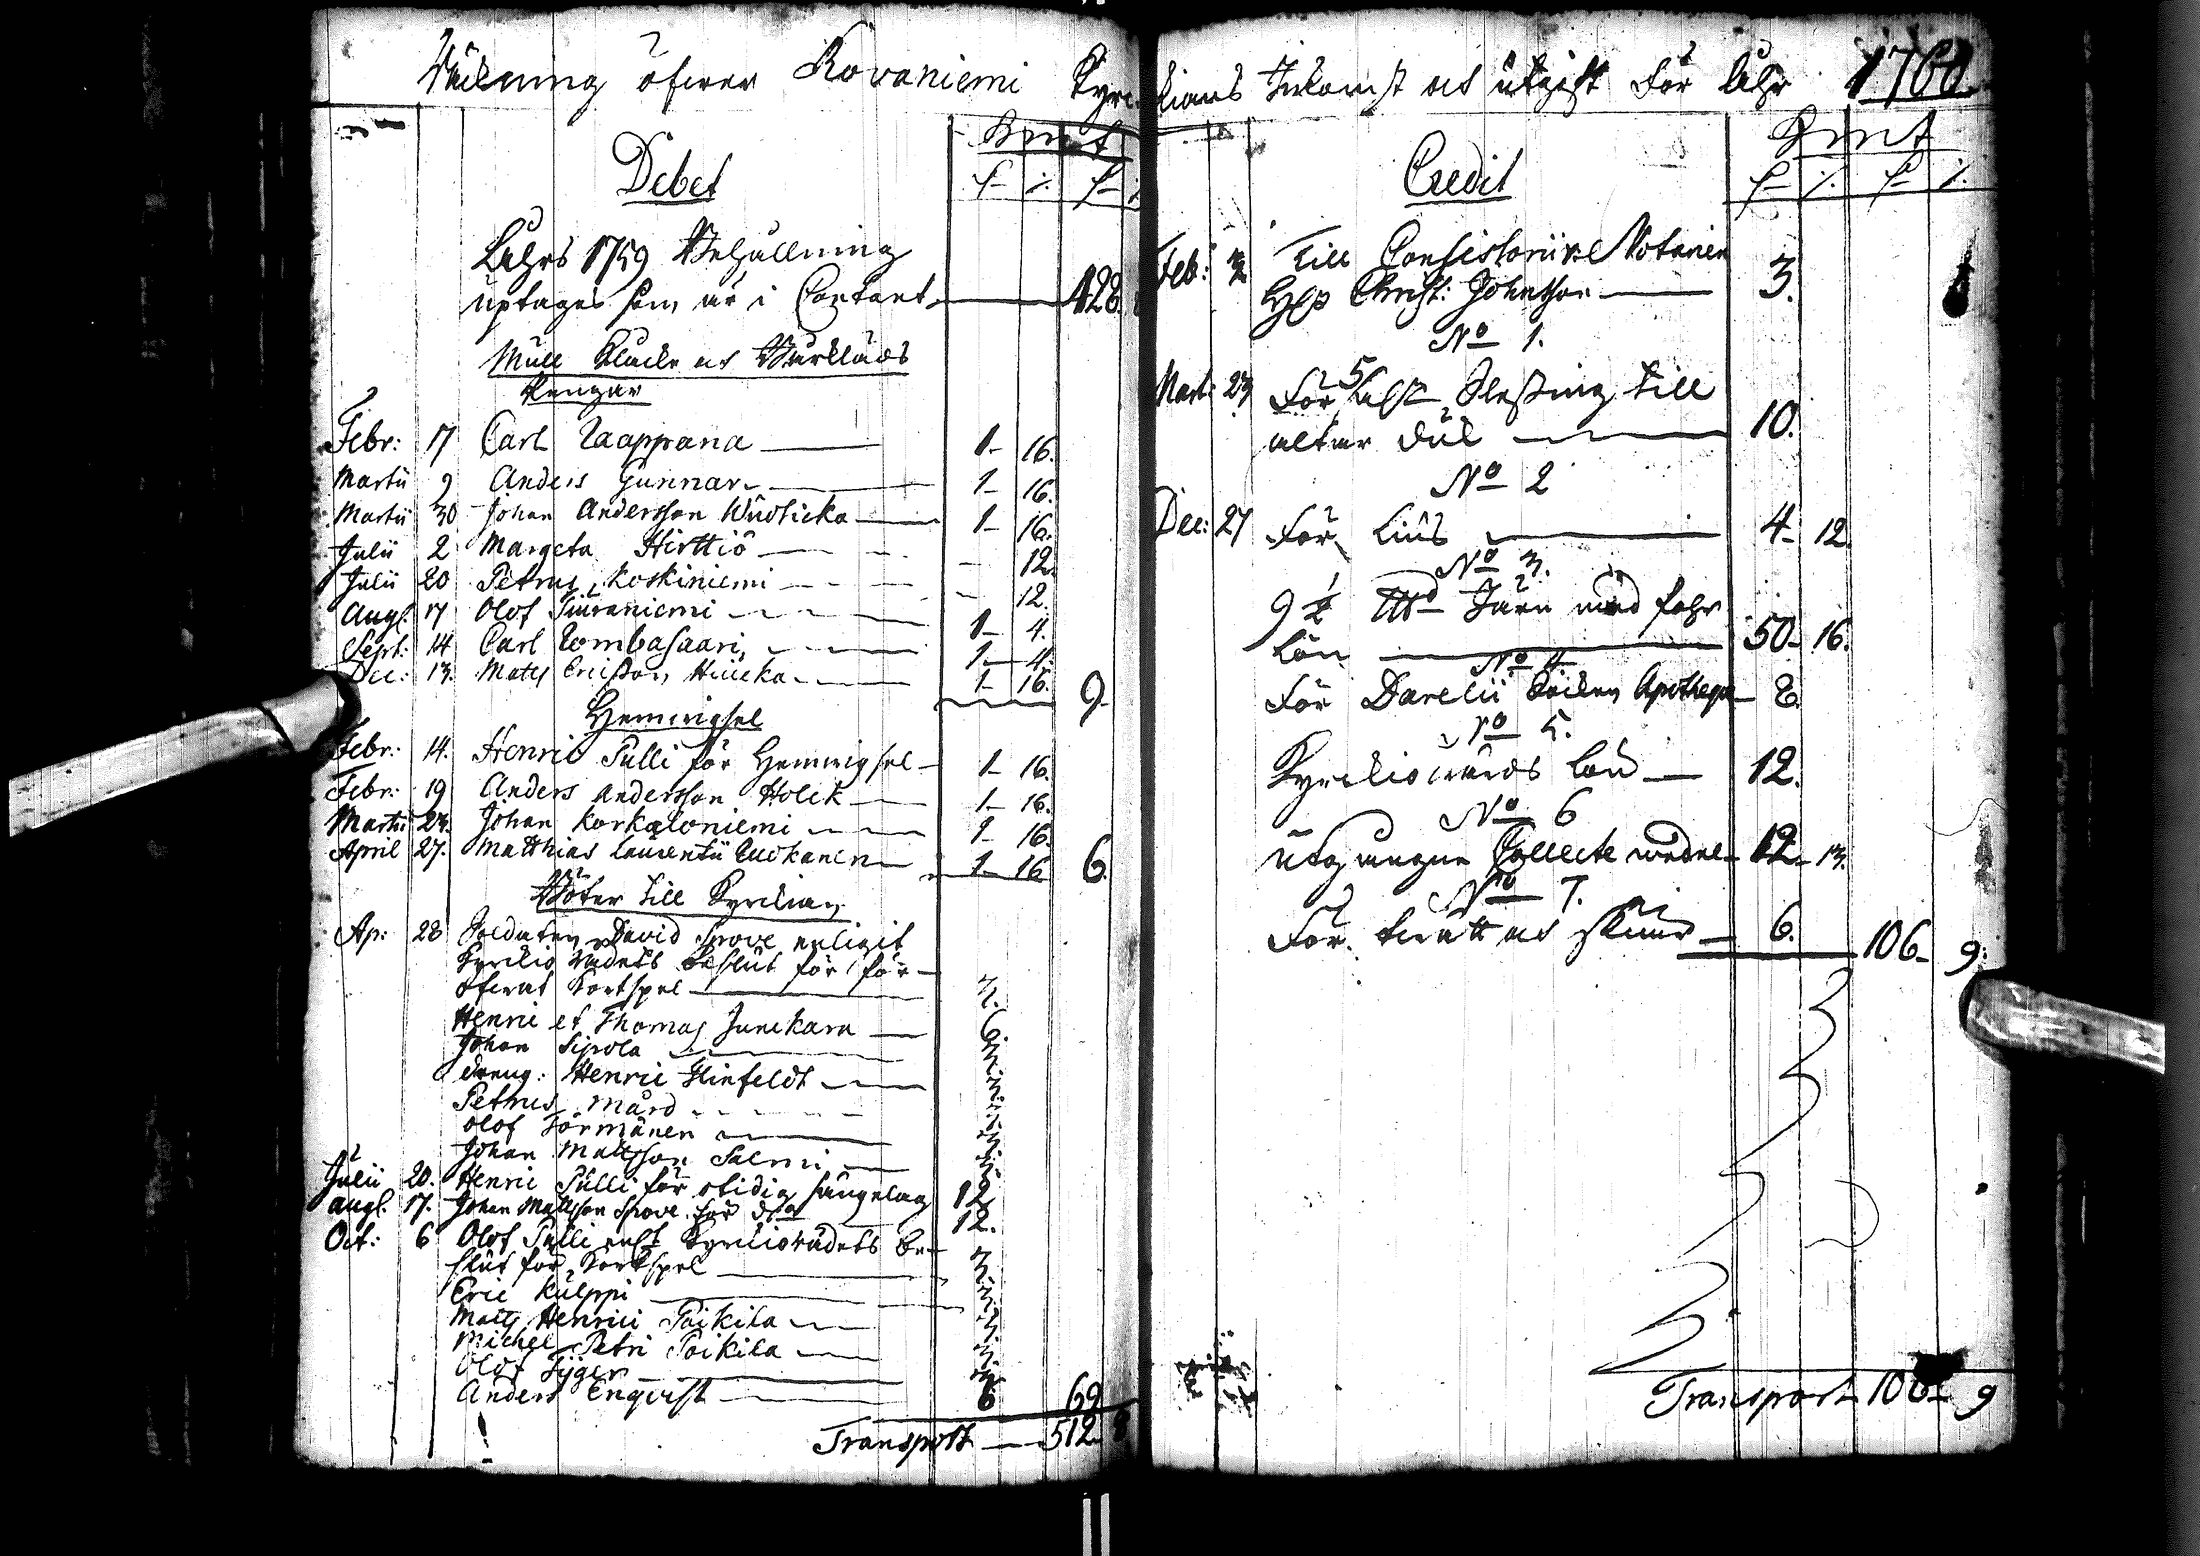 Räkning öfwer Rovaniemi Kyrckians Inkomst och utgift För Åhr 1760
Debet
Kmt
Åhrs 1759 Behållning
uptages som är i Contant 428
Mull Klocke och Bårkläds
Pengar
Febr: 17 Carl Taappana 1 16.
Martii 9 Anders Gunnar 1 16.
Martii 30 Johan Andersson 1 16.
Julii 2 Margeta Hirttiö 12.
Julii 20 Petrus Koskiniemi 12.
Augl: 17 Olof Siuraniemi 1 4.
Sept: 14 Carl Lombasaari 1 4.
Dec: 13. Mats Ericsson 1 16. 9
Hemmigsel
Febr: 14. Henric Pulli för Hemmigsel 1 16.
Febr: 19 Anders Andersson Holck 1 16.
Martii 23. Johan Korkaloniemi 1 16.
April 27. Matthias Laurentii 1 16 6.
Böter till Kyrckian
Ap: 28 Soldaten David Srove enligit
Kyrckio Rådets Beslut för för-
öfwat Kortspel 3.
Henric et Thomas Junckara 6
Johan Sipola 3.
Dreng: Henric Hinfeldt 3.
Petrus Mård 3.
Olof Törmänen 3.
Johan Mattsson Salmi 3.
Julii 20. Henric Pulli för otidig sängelag 12
Augl. 17. Johan Mattsson Srove för do 12.
Oct: 6 Olof Pulli enl. Kyrckiorådets be-
slut för Kortspel 3.
Eric Kulppi 3.
Mats Henrici Poikila 3.
Michel Petri Poikila 3.
Olof Tijger 3.
Anders Enqvist 6 69
Transport 512
Credit
Kmt
Feb: 3 Till Consistorii Notarien
H: Christ: Johnthon 3.
No 1.
Mart: 23 För 5 till
altar duk 10.
No 2
Dec: 27 För Lius 4 12
No 3.
9 1/2 Järn med fohr
lön 50 16.
No 4
För Darelii Socken Apothequ 8.
No 5.
Kyrckiowärds lön 12.
No 6
utgångne Collecte medel 12 13.
No 7.
För 6. 106 9.
Transport 106 9